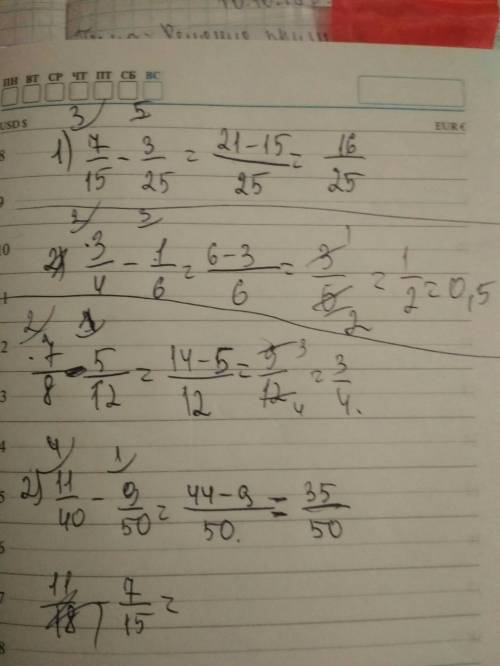 ПН ВТ СР ЧТ ПТ СБ ВС
USD $ EUR €
3 5
1) 7/15 - 3/25 = 21-15/25 = 16/25
2) 3/4 - 1/6 = 6-3/6 = 3/6 = 1/2 = 0,5
7/8 - 5/12 = 14-5/12 = 9/12 = 3/4.
4 1
2) 11/40 - 9/50 = 44-9/50. = 35/50
11/18 - 7/15 =